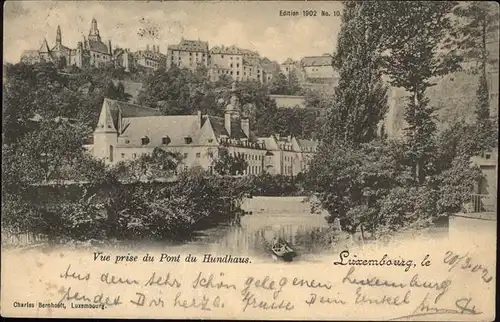 Edition 1902 No. 10.
Vue prise du Pont du Hundhaus.
Luxembourg, le
Aus dem sehr schön gelegenen Luxemburg
sendet Dir herzl. Grüsse Dein Enkel
Charles Bernhoeft, Luxembourg.